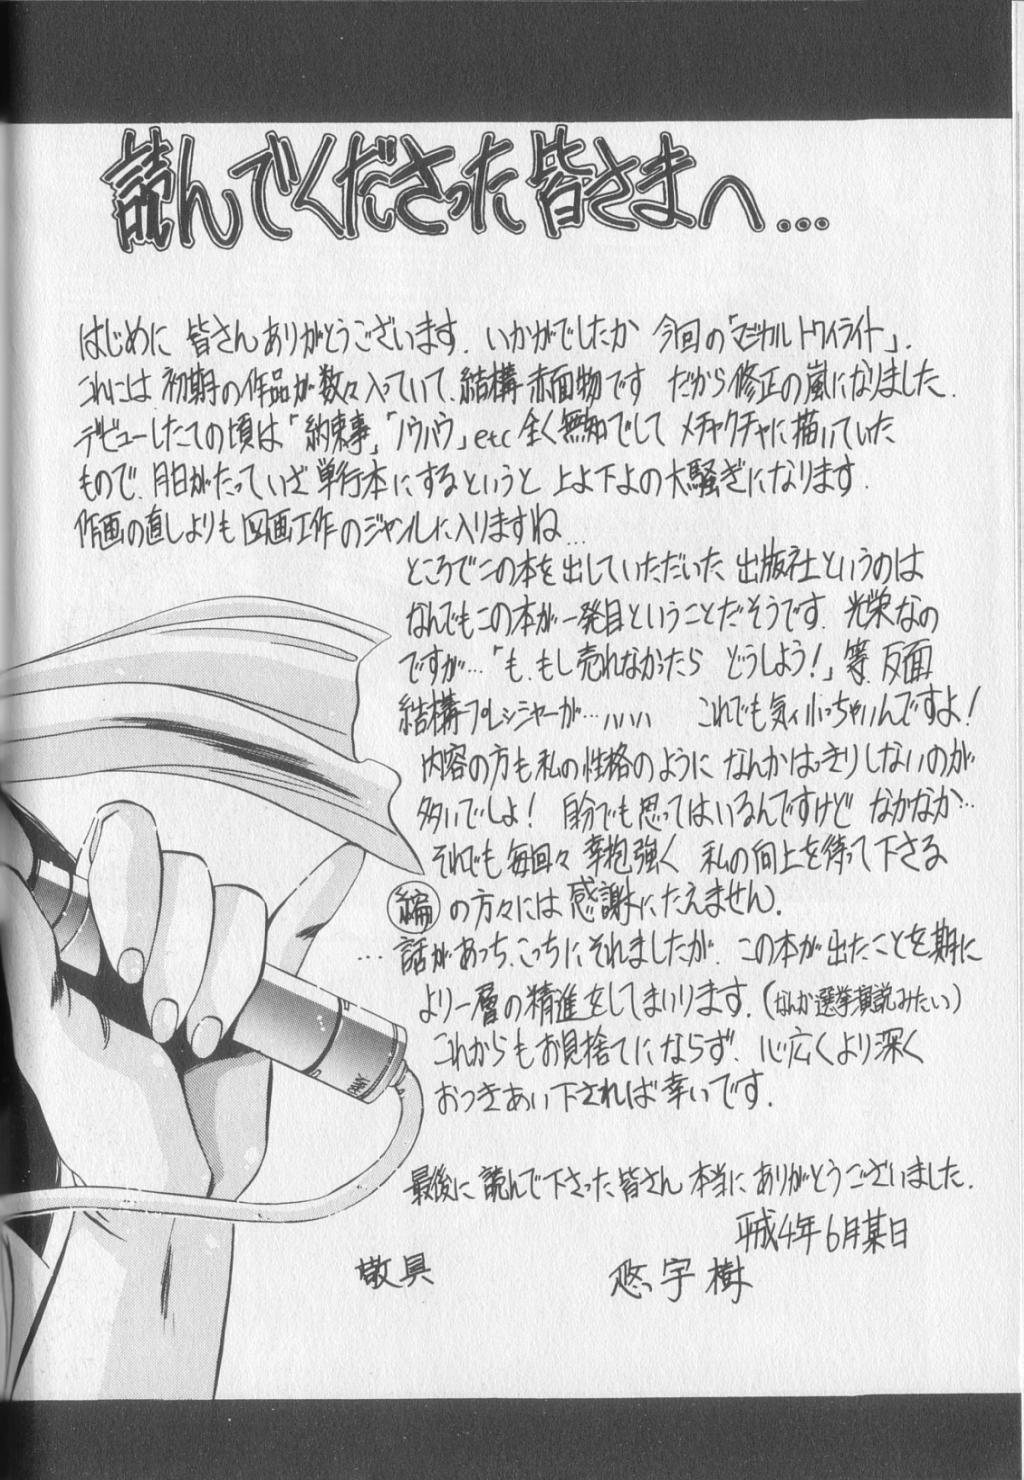 読んでくださった皆さまへ...
はじめに 皆さんありがとうございます. いかがでしたか 今回の「マジカルトワイライト」.
これには 初期の作品が数々入っていて、結構赤面物です だから修正の嵐になりました.
デビューしたての頃は「約束事」「ノウハウ」etc 全く無知でして メチャクチャに描いていた
もので、月日がたっていざ単行本にするというと 上よ下よの大騒ぎになります.
作画の直しよりも 図画工作のジャンルに入りますね...
ところでこの本を出していただいた 出版社というのは
なんでもこの本が一発目ということだそうです. 光栄なの
ですが...「も、もし売れなかったら どうしよう!」等、反面
結構プレシャーが...ハハハ これでも気ィ小っちゃいんですよ!
内容の方も私の性格のように なんかはっきりしないのが
多いでしよ! 自分でも思ってはいるんですけど なかなか...
それでも毎回々 辛抱強く 私の向上を待って下さる
編の方々には感謝にたえません.
...話があっち、こっちにそれましたが、この本が出たことを期に
より一層の精進をしてまいります. (なんか選挙演説みたい)
これからもお見捨てにならず、心広くより深く
おつきあい下されば幸いです.
最後に 読んで下さった皆さん 本当にありがとうございました.
平成4年6月某日
敬具 悠宇樹